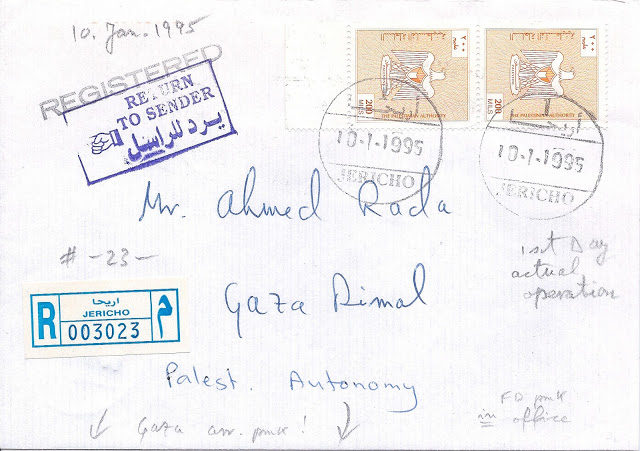 10. Jan. 1995
REGISTERED
RETURN
TO SENDER
يرد للراسل
٢٠٠
مليم
٢٠٠
مليم
السلطة الفلسطينية
السلطة الفلسطينية
200
MILS
THE PALESTINIAN AUTHORITY
200
MILS
THE PALESTINIAN AUTHORITY
أريحا
10-1-1995
JERICHO
أريحا
10-1-1995
JERICHO
Mr. Ahmed Rada
# -23-
1st Day
actual
operation
Gaza Rimal
R
اريحا
JERICHO
003023
م
Palest. Autonomy
Gaza arr. pmk!
FD pmk
in office